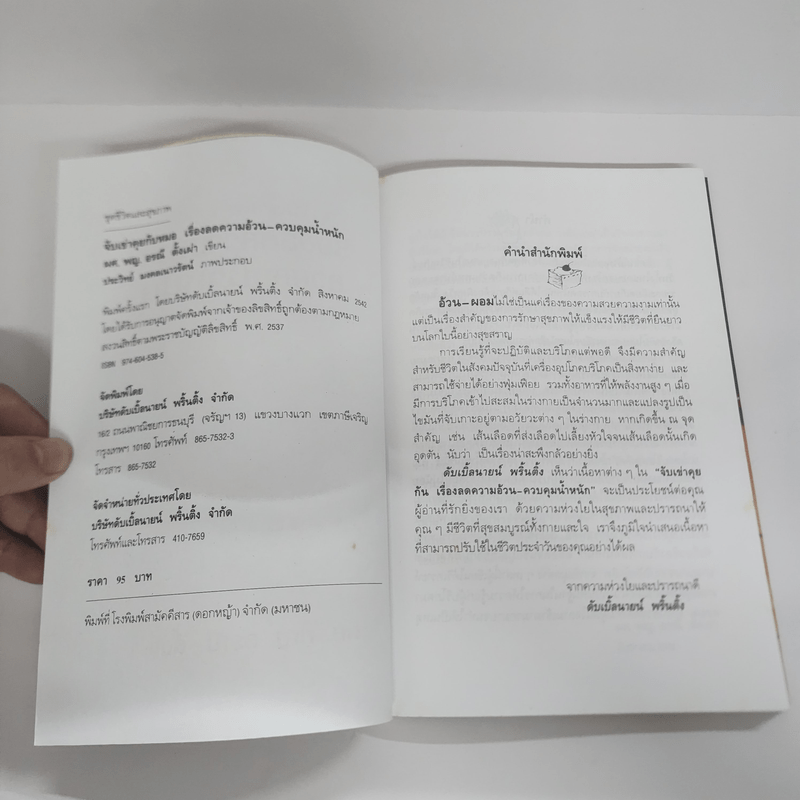 ชุดชีวิตและสุขภาพ
จับเข่าคุยกับหมอ เรื่องลดความอ้วน-ควบคุมน้ำหนัก
ผศ. พญ. อรณี ตั้งเผ่า เขียน
ประวิทย์ มงคลเนาวรัตน์ ภาพประกอบ
พิมพ์ครั้งแรก โดยบริษัทดับเบิ้ลนายน์ พริ้นติ้ง จำกัด สิงหาคม 2542
โดยได้รับการอนุญาตจัดพิมพ์จากเจ้าของลิขสิทธิ์ถูกต้องตามกฎหมาย
สงวนสิทธิ์ตามพระราชบัญญัติลิขสิทธิ์ พ.ศ. 2537
ISBN 974-604-538-5
จัดพิมพ์โดย
บริษัทดับเบิ้ลนายน์ พริ้นติ้ง จำกัด
16/2 ถนนพาณิชยการธนบุรี (จรัญฯ 13) แขวงบางแวก เขตภาษีเจริญ
กรุงเทพฯ 10160 โทรศัพท์ 865-7532-3
โทรสาร 865-7532
จัดจำหน่ายทั่วประเทศโดย
บริษัทดับเบิ้ลนายน์ พริ้นติ้ง จำกัด
โทรศัพท์และโทรสาร 410-7659
ราคา 95 บาท
พิมพ์ที่ โรงพิมพ์สามัคคีสาร (ดอกหญ้า) จำกัด (มหาชน)
คำนำสำนักพิมพ์
อ้วน-ผอมไม่ใช่เป็นแค่เรื่องของความสวยความงามเท่านั้น
แต่เป็นเรื่องสำคัญของการรักษาสุขภาพให้แข็งแรงให้มีชีวิตที่ยืนยาว
บนโลกใบนี้อย่างสุขสราญ
การเรียนรู้ที่จะปฏิบัติและบริโภคแต่พอดี จึงมีความสำคัญ
สำหรับชีวิตในสังคมปัจจุบันที่เครื่องอุปโภคบริโภคเป็นสิ่งหาง่าย และ
สามารถใช้จ่ายได้อย่างฟุ่มเฟือย รวมทั้งอาหารที่ให้พลังงานสูง ๆ เมื่อ
มีการบริโภคเข้าไปสะสมในร่างกายเป็นจำนวนมากและแปลงรูปเป็น
ไขมันที่จับเกาะอยู่ตามอวัยวะต่าง ๆ ในร่างกาย หากเกิดขึ้น ณ จุด
สำคัญ เช่น เส้นเลือดที่ส่งเลือดไปเลี้ยงหัวใจจนเส้นเลือดนั้นเกิด
อุดตัน นับว่า เป็นเรื่องน่าสะพึงกลัวอย่างยิ่ง
ดับเบิ้ลนายน์ พริ้นติ้ง เห็นว่าเนื้อหาต่าง ๆ ใน “จับเข่าคุย
กัน เรื่องลดความอ้วน-ควบคุมน้ำหนัก” จะเป็นประโยชน์ต่อคุณ
ผู้อ่านที่รักยิ่งของเรา ด้วยความห่วงใยในสุขภาพและปรารถนาให้
คุณ ๆ มีชีวิตที่สุขสมบูรณ์ทั้งกายและใจ เราจึงภูมิใจนำเสนอเนื้อหา
ที่สามารถปรับใช้ในชีวิตประจำวันของคุณอย่างได้ผล
จากความห่วงใยและปรารถนาดี
ดับเบิ้ลนายน์ พริ้นติ้ง